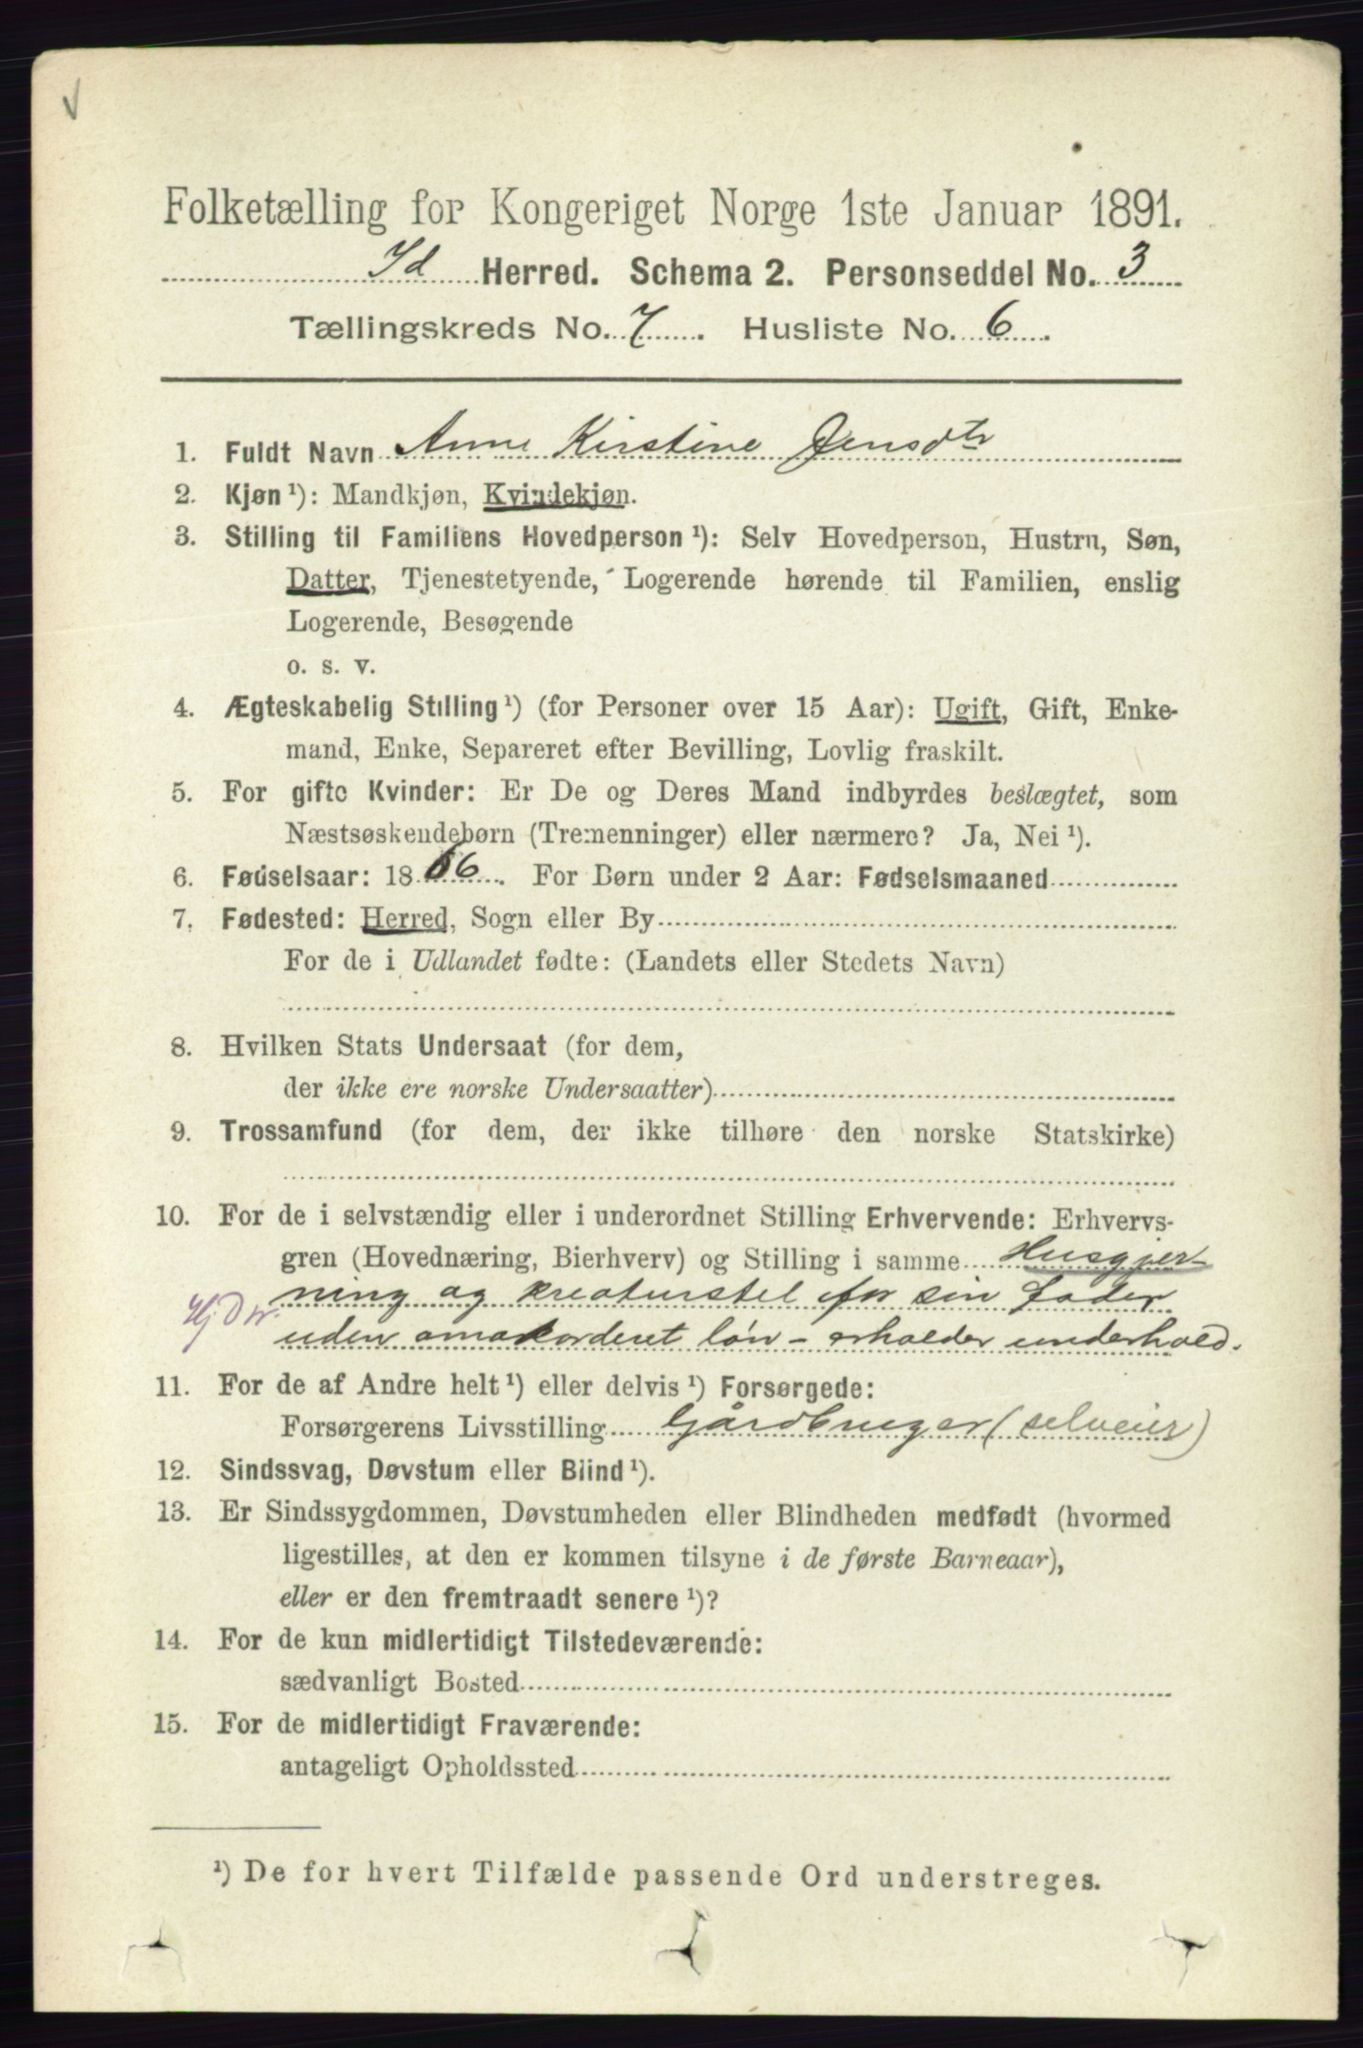 Folketælling for Kongeriget Norge 1ste Januar 1891.
Id Herred. Schema 2. Personseddel No. 3
Tællingskreds No. 7. Husliste No. 6.
1. Fuldt Navn Anne Kirstine Jensdtr
2. Kjøn ¹): Mandkjøn, Kvindekjøn.
3. Stilling til Familiens Hovedperson ¹): Selv Hovedperson, Hustru, Søn,
Datter, Tjenestetyende, Logerende hørende til Familien, enslig
Logerende, Besøgende
o. s. v.
4. Ægteskabelig Stilling ¹) (for Personer over 15 Aar): Ugift, Gift, Enke-
mand, Enke, Separeret efter Bevilling, Lovlig fraskilt.
5. For gifte Kvinder: Er De og Deres Mand indbyrdes beslægtet, som
Næstsøskendebørn (Tremenninger) eller nærmere? Ja, Nei ¹).
6. Fødselsaar: 1866. For Børn under 2 Aar: Fødselsmaaned
7. Fødested: Herred, Sogn eller By
For de i Udlandet fødte: (Landets eller Stedets Navn)
8. Hvilken Stats Undersaat (for dem,
der ikke ere norske Undersaatter)
9. Trossamfund (for dem, der ikke tilhøre den norske Statskirke)
10. For de i selvstændig eller i underordnet Stilling Erhvervende: Erhvervs-
gren (Hovednæring, Bierhverv) og Stilling i samme Husgjer-
ning og kreaturstel for sin fader
Hj. Dtr.
uden omakorderet løn - erholder underhold.
11. For de af Andre helt ¹) eller delvis ¹) Forsørgede:
Forsørgerens Livsstilling Gårdbruger (selveier)
12. Sindssvag, Døvstum eller Blind ¹).
13. Er Sindssygdommen, Døvstumheden eller Blindheden medfødt (hvormed
ligestilles, at den er kommen tilsyne i de første Barneaar),
eller er den fremtraadt senere ¹)?
14. For de kun midlertidigt Tilstedeværende:
sædvanligt Bosted
15. For de midlertidigt Fraværende:
antageligt Opholdssted
¹) De for hvert Tilfælde passende Ord understreges.